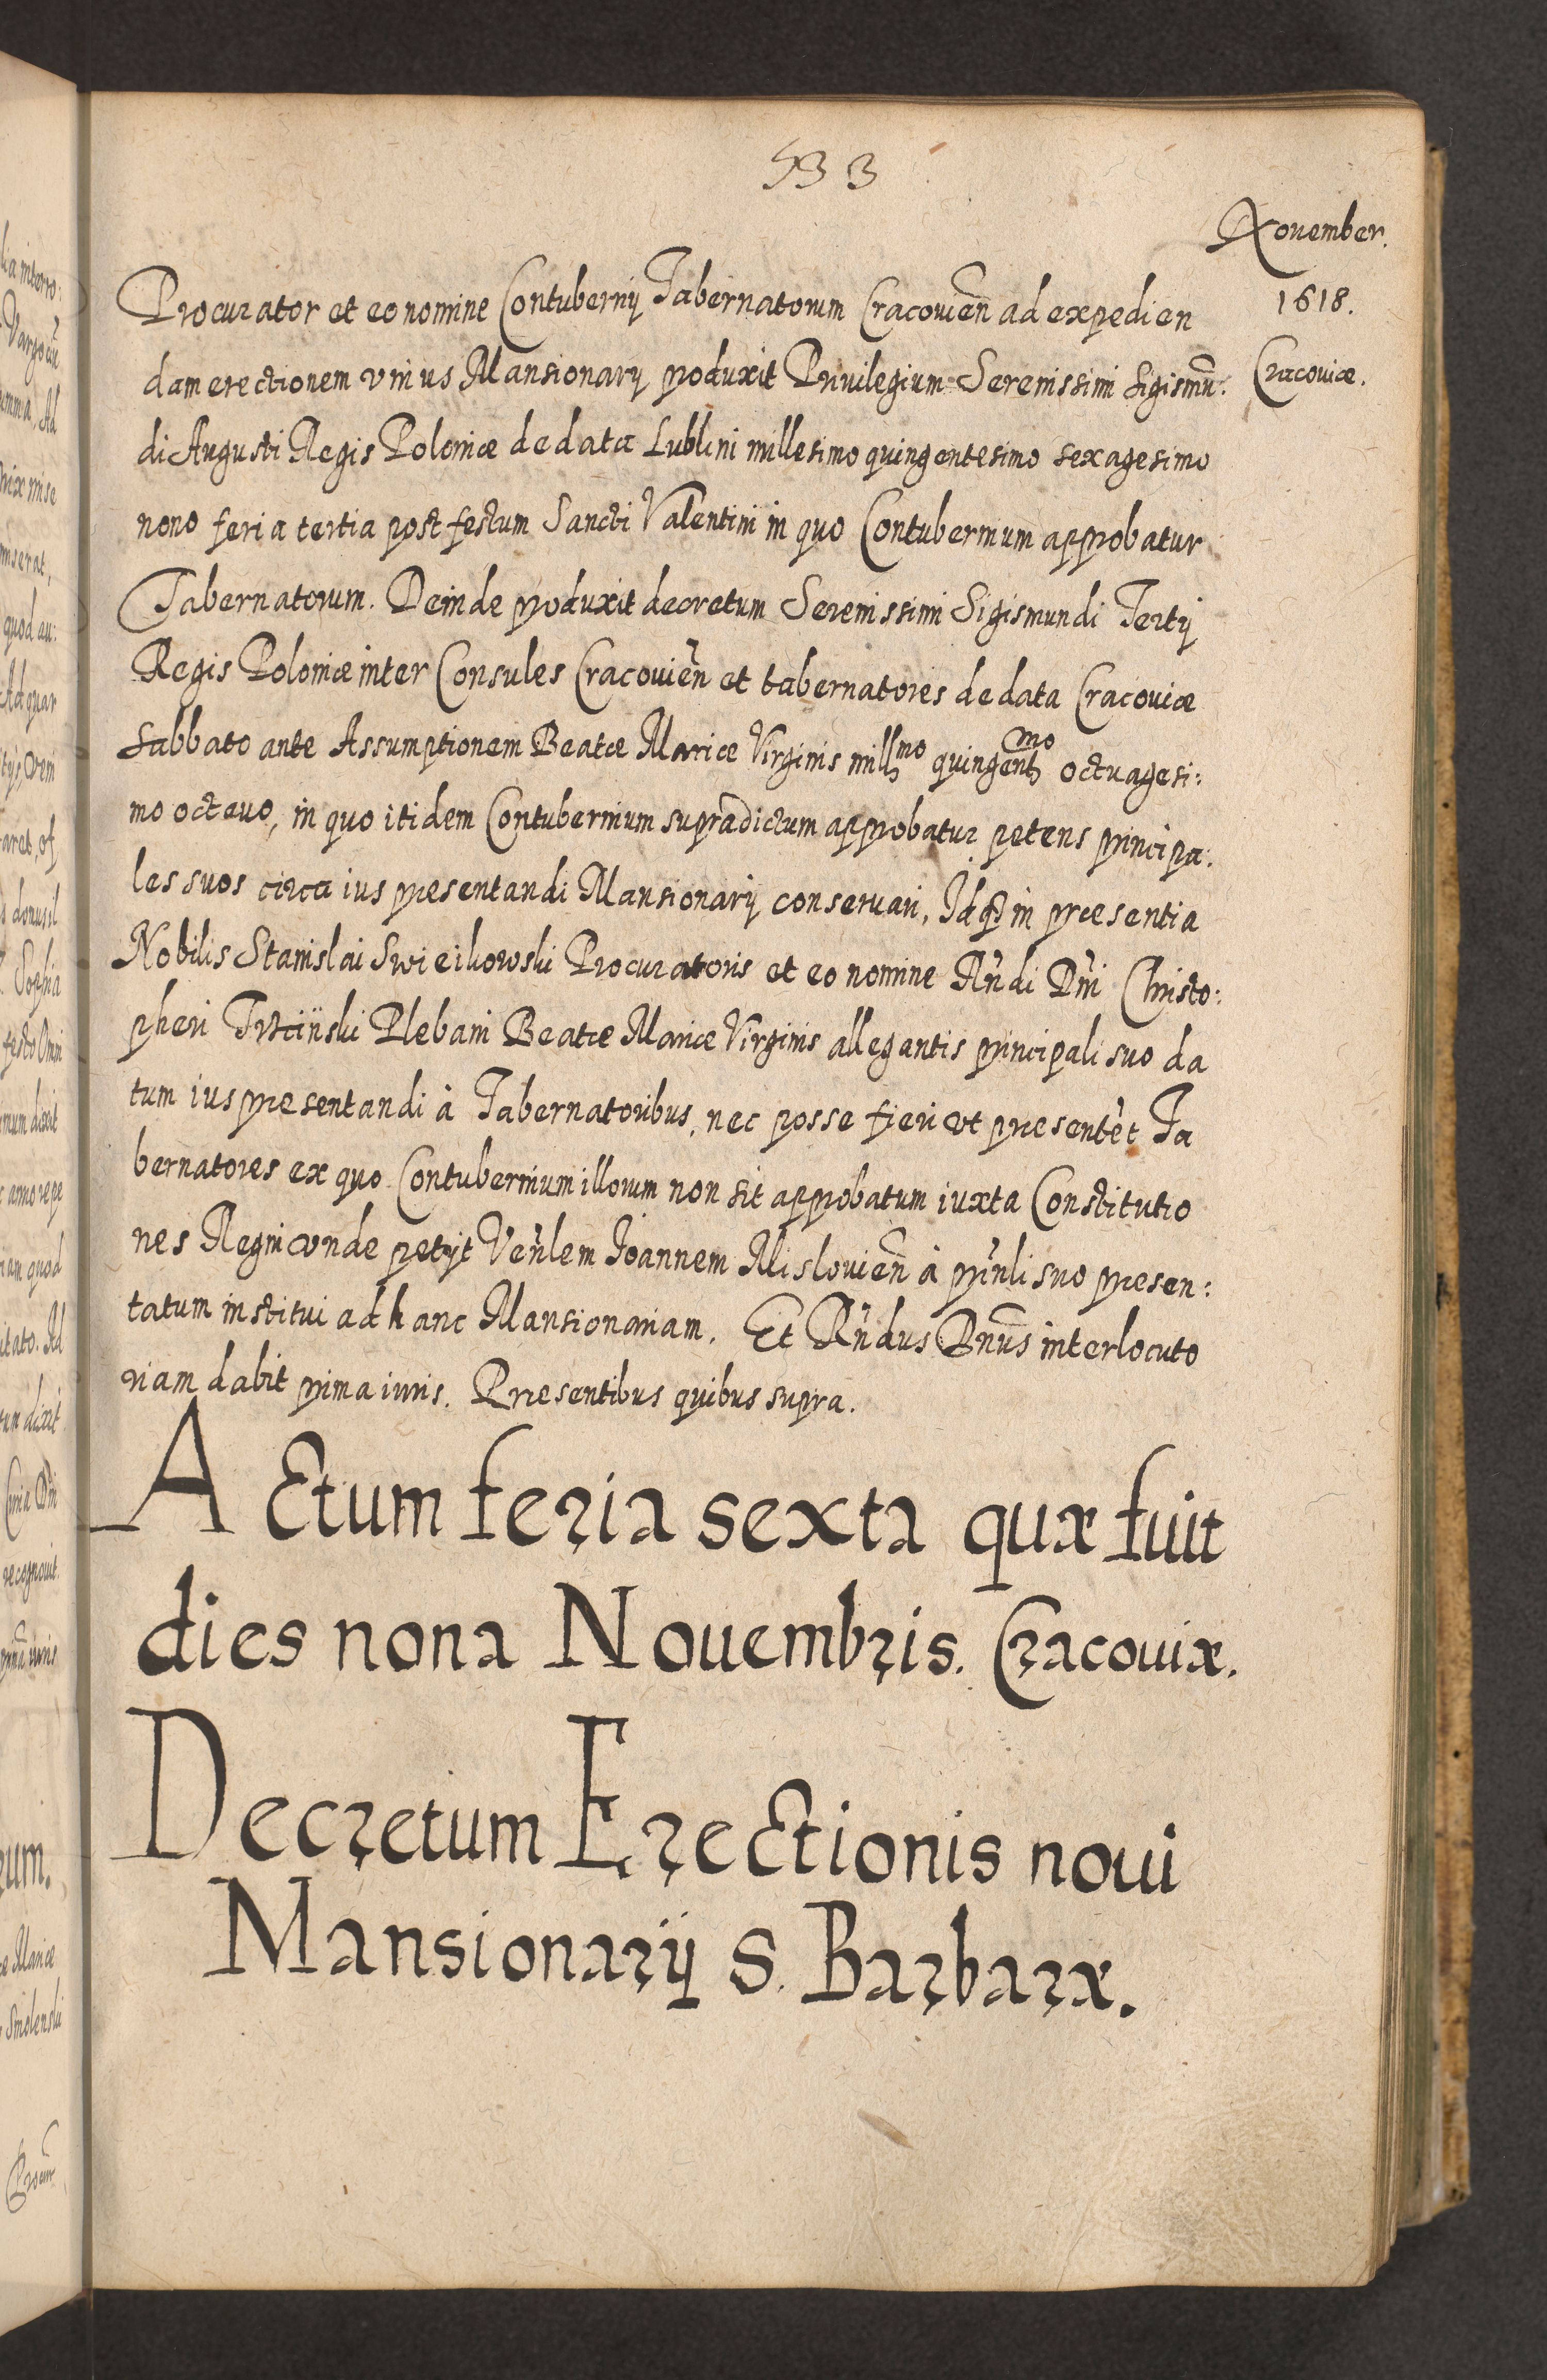 533
Nouember.
1618.
Cracouiæ.
Procurator et eo nomine Contubernij Tabernatorum Cracouien̄ ad expedien
dam erectionem vnius Mansionarij produxit Priuilegium Serenissimi Sigismū:
di Augusti Regis Poloniæ de data Lublini millesimo quingentesimo sexagesimo
nono feria tertia post festum Sancti Valentini in quo Contubernium approbatur
Tabernatorum. Deinde produxit decretum Serenissimi Sigismundi Tertij
Regis Poloniæ inter Consules Cracouien̄ et tabernatores de data Cracouiæ
Sabbato ante Assumptionem Beatæ Mariæ Virginis mill^mo quingent^mo octuagesi:
mo octauo, in quo itidem Contubernium supradictum approbatur petens principa:
les suos circa ius præsentandi Mansionarij conseruari, Idq̃ in præsentia
Nobilis Stanislai Procuratoris et eo nomine Rñdi Dñi Christo:
pheri Plebani Beatæ Mariæ Virginis allegantis principali suo da
tum ius præsentandi à Tabernatoribus, nec posse fieri vt præsentēt Ta
bernatores ex quo Contubernium illorum non sit approbatum iuxta Constitutio
nes Regni vnde petijt Veñlem Joannem Mislouien̄ à prīnli suo præsen:
tatum institui ad hanc Mansionariam. Et Rñdus Dnūs interlocuto
riam dabit prima iuris. Præsentibus quibus supra.
Actum feria sexta quæ fuit
dies nona Nouembris. Cracouiæ.
Decretum Erectionis noui
Mansionarij S. Barbaræ.